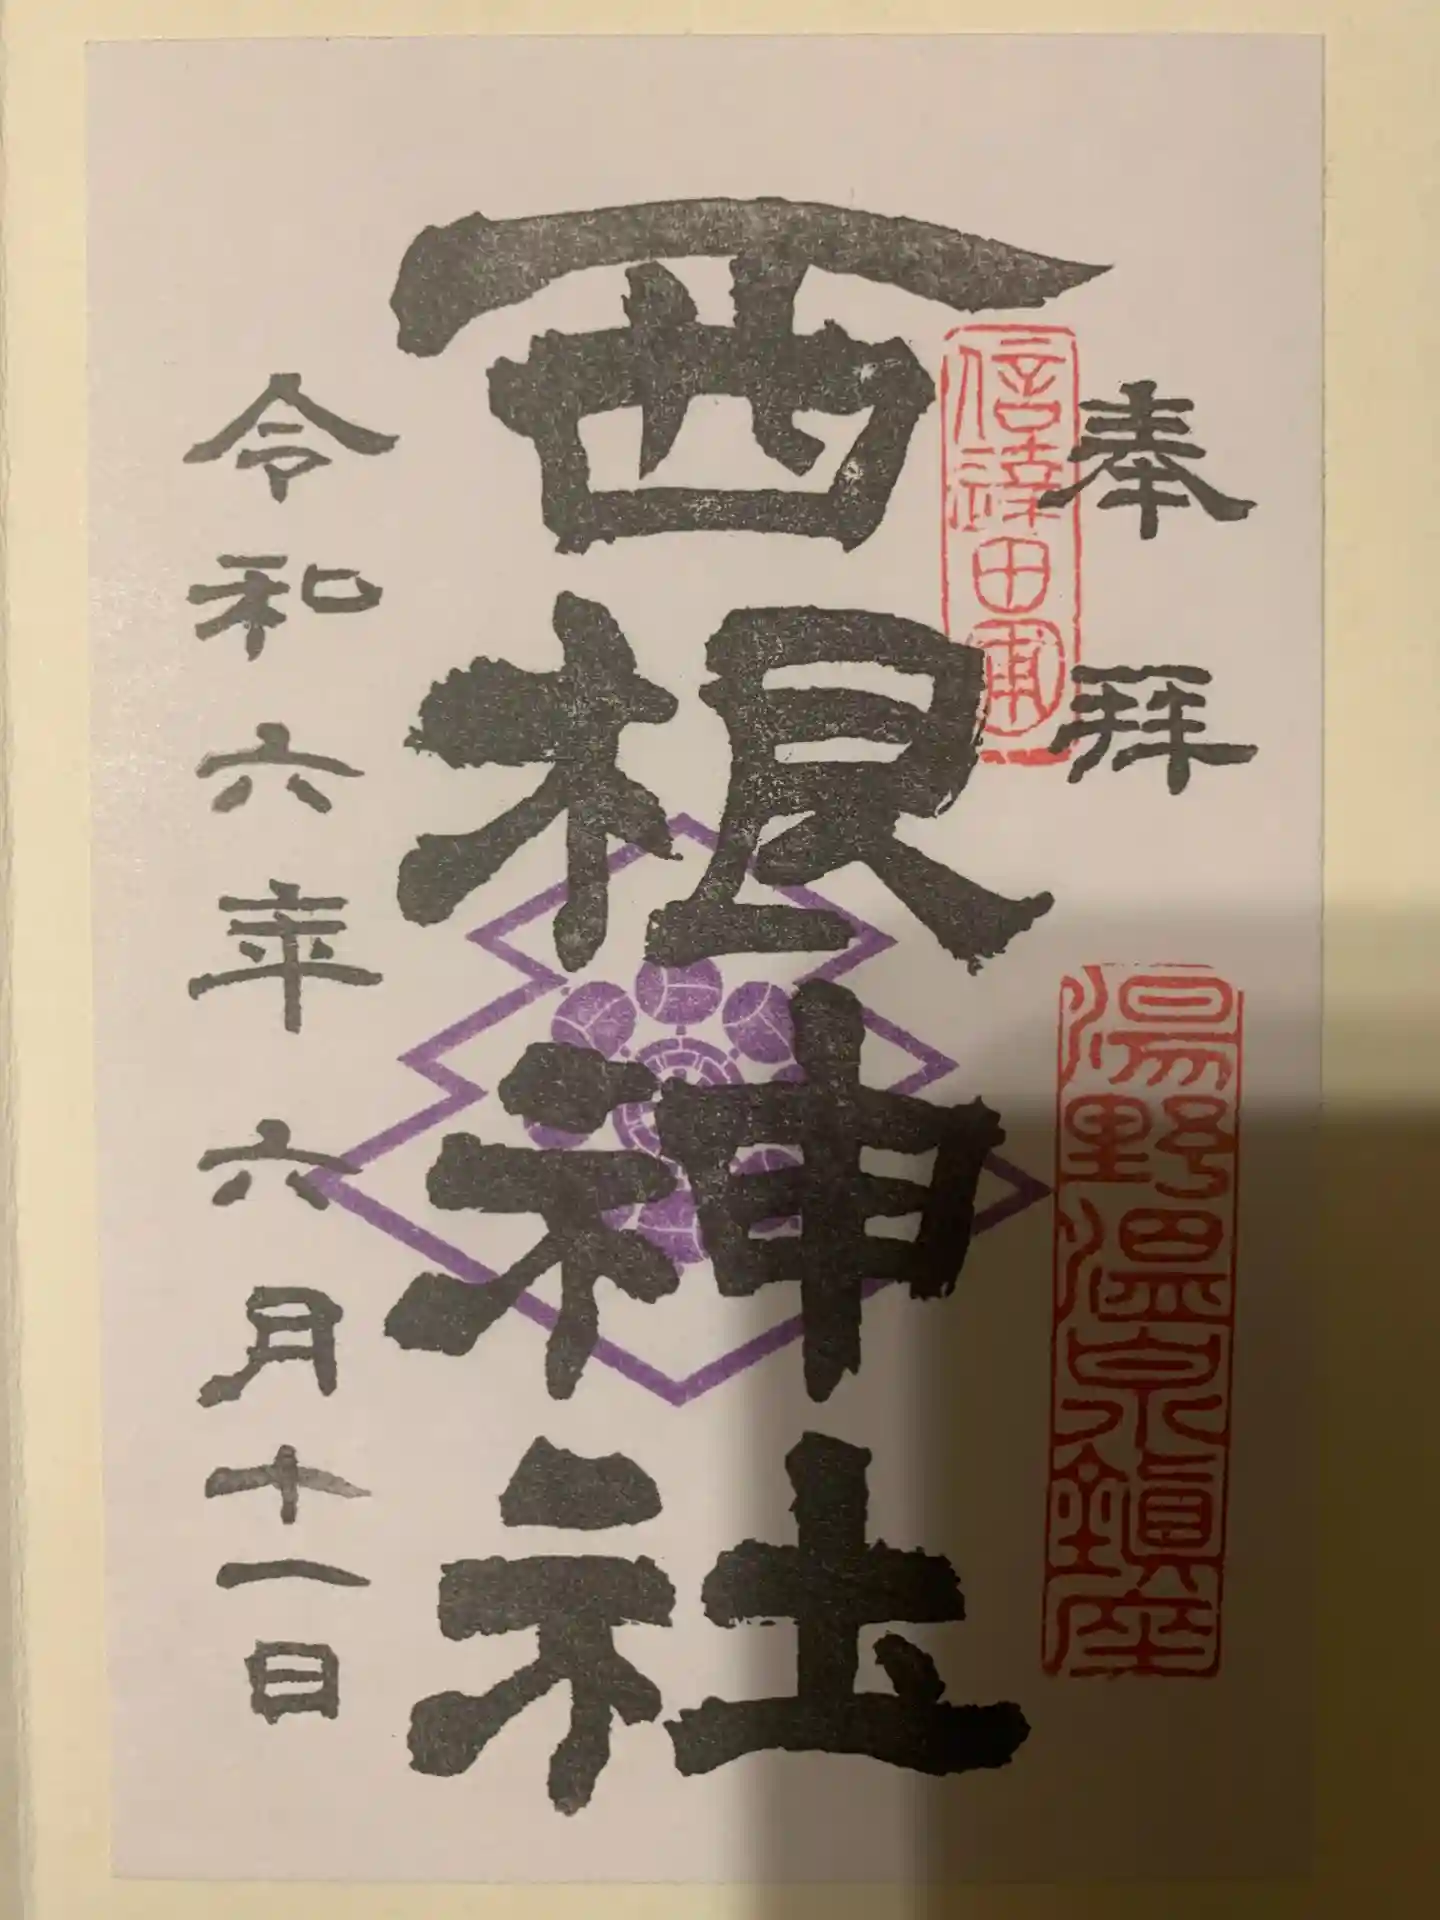 奉拝
信達田甫一
湯野温泉鎮座
西根神社
令和六年六月十一日